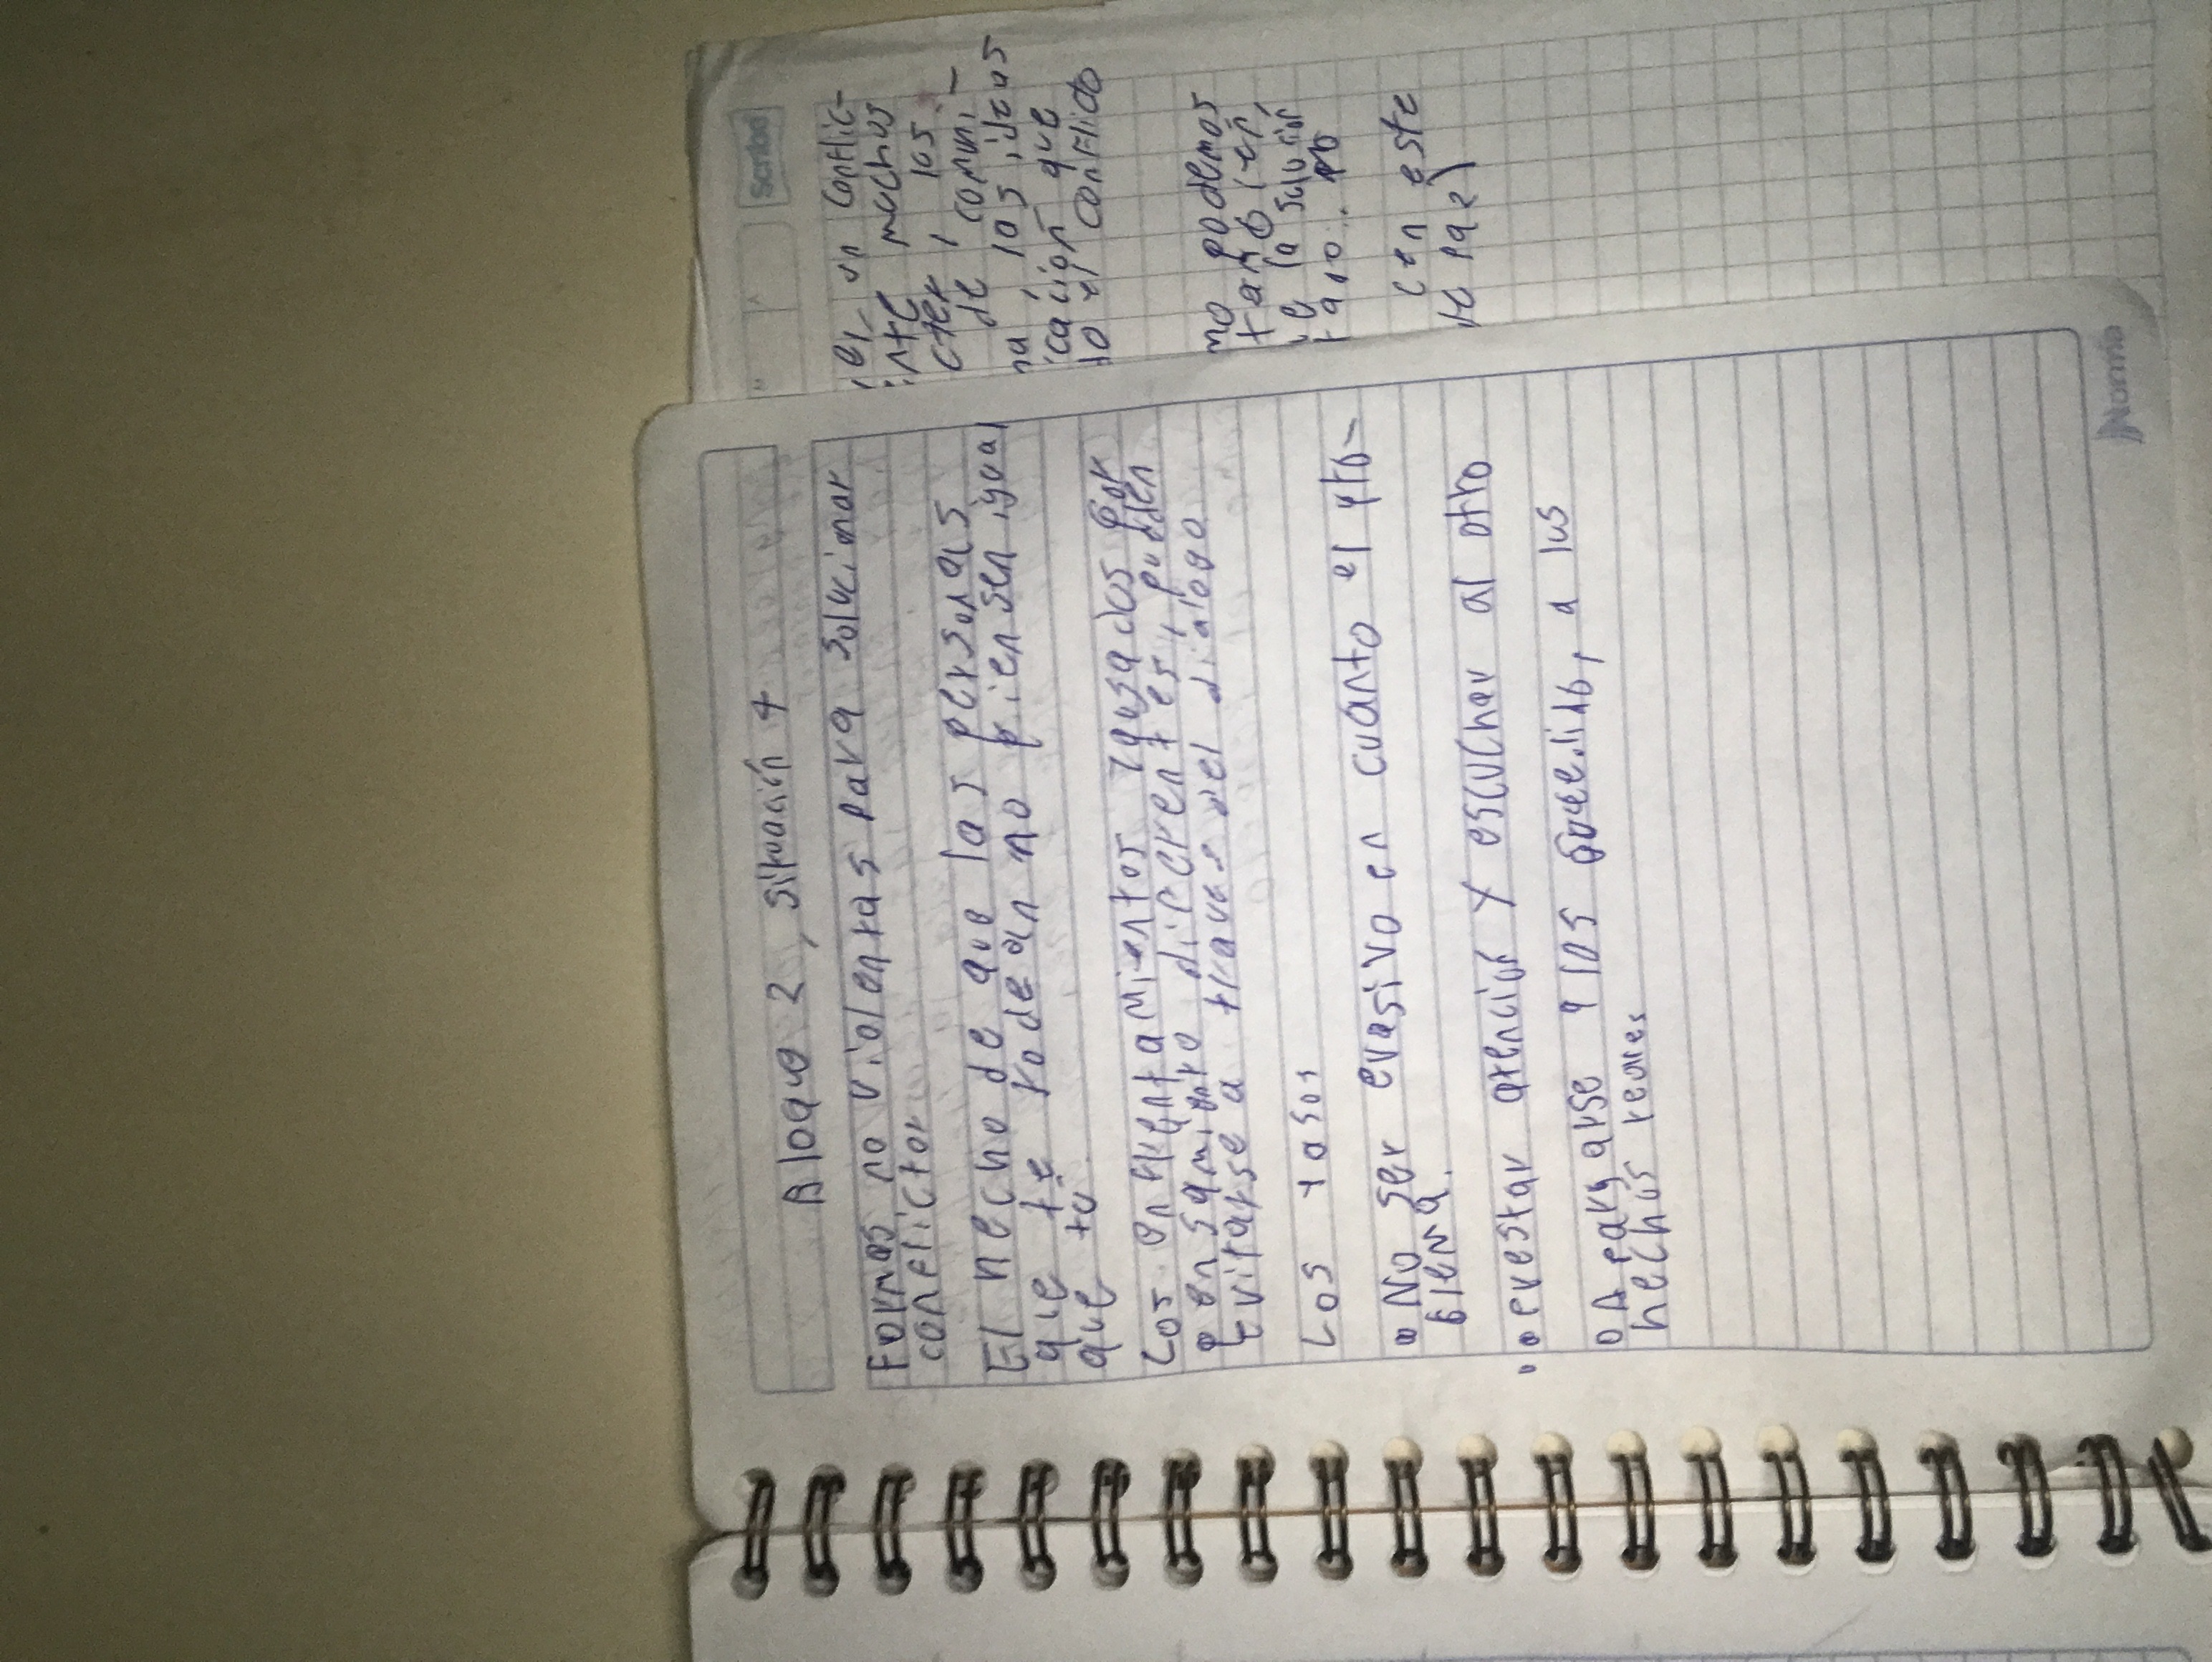 Bloque 2, situación 4
Formas no violentas para solucinar
conflictos
El hecho de que las personas
que te rodean no piensen igual
que tu
Los enfrentamientos causados por
pensamiento diferentes, pudden
Evitarse a traves del dialogo
Los pasos
No ser evasivo en cuanto el pro-
blema.
prestar atención y escuchar al otro
Apegarse a los sucedido, a los
hechos reales
Norma
Scribe
un conflic-
muchos
los
de comuni-
las ideas
cación que
conflicto
no podemos
la solución
en este